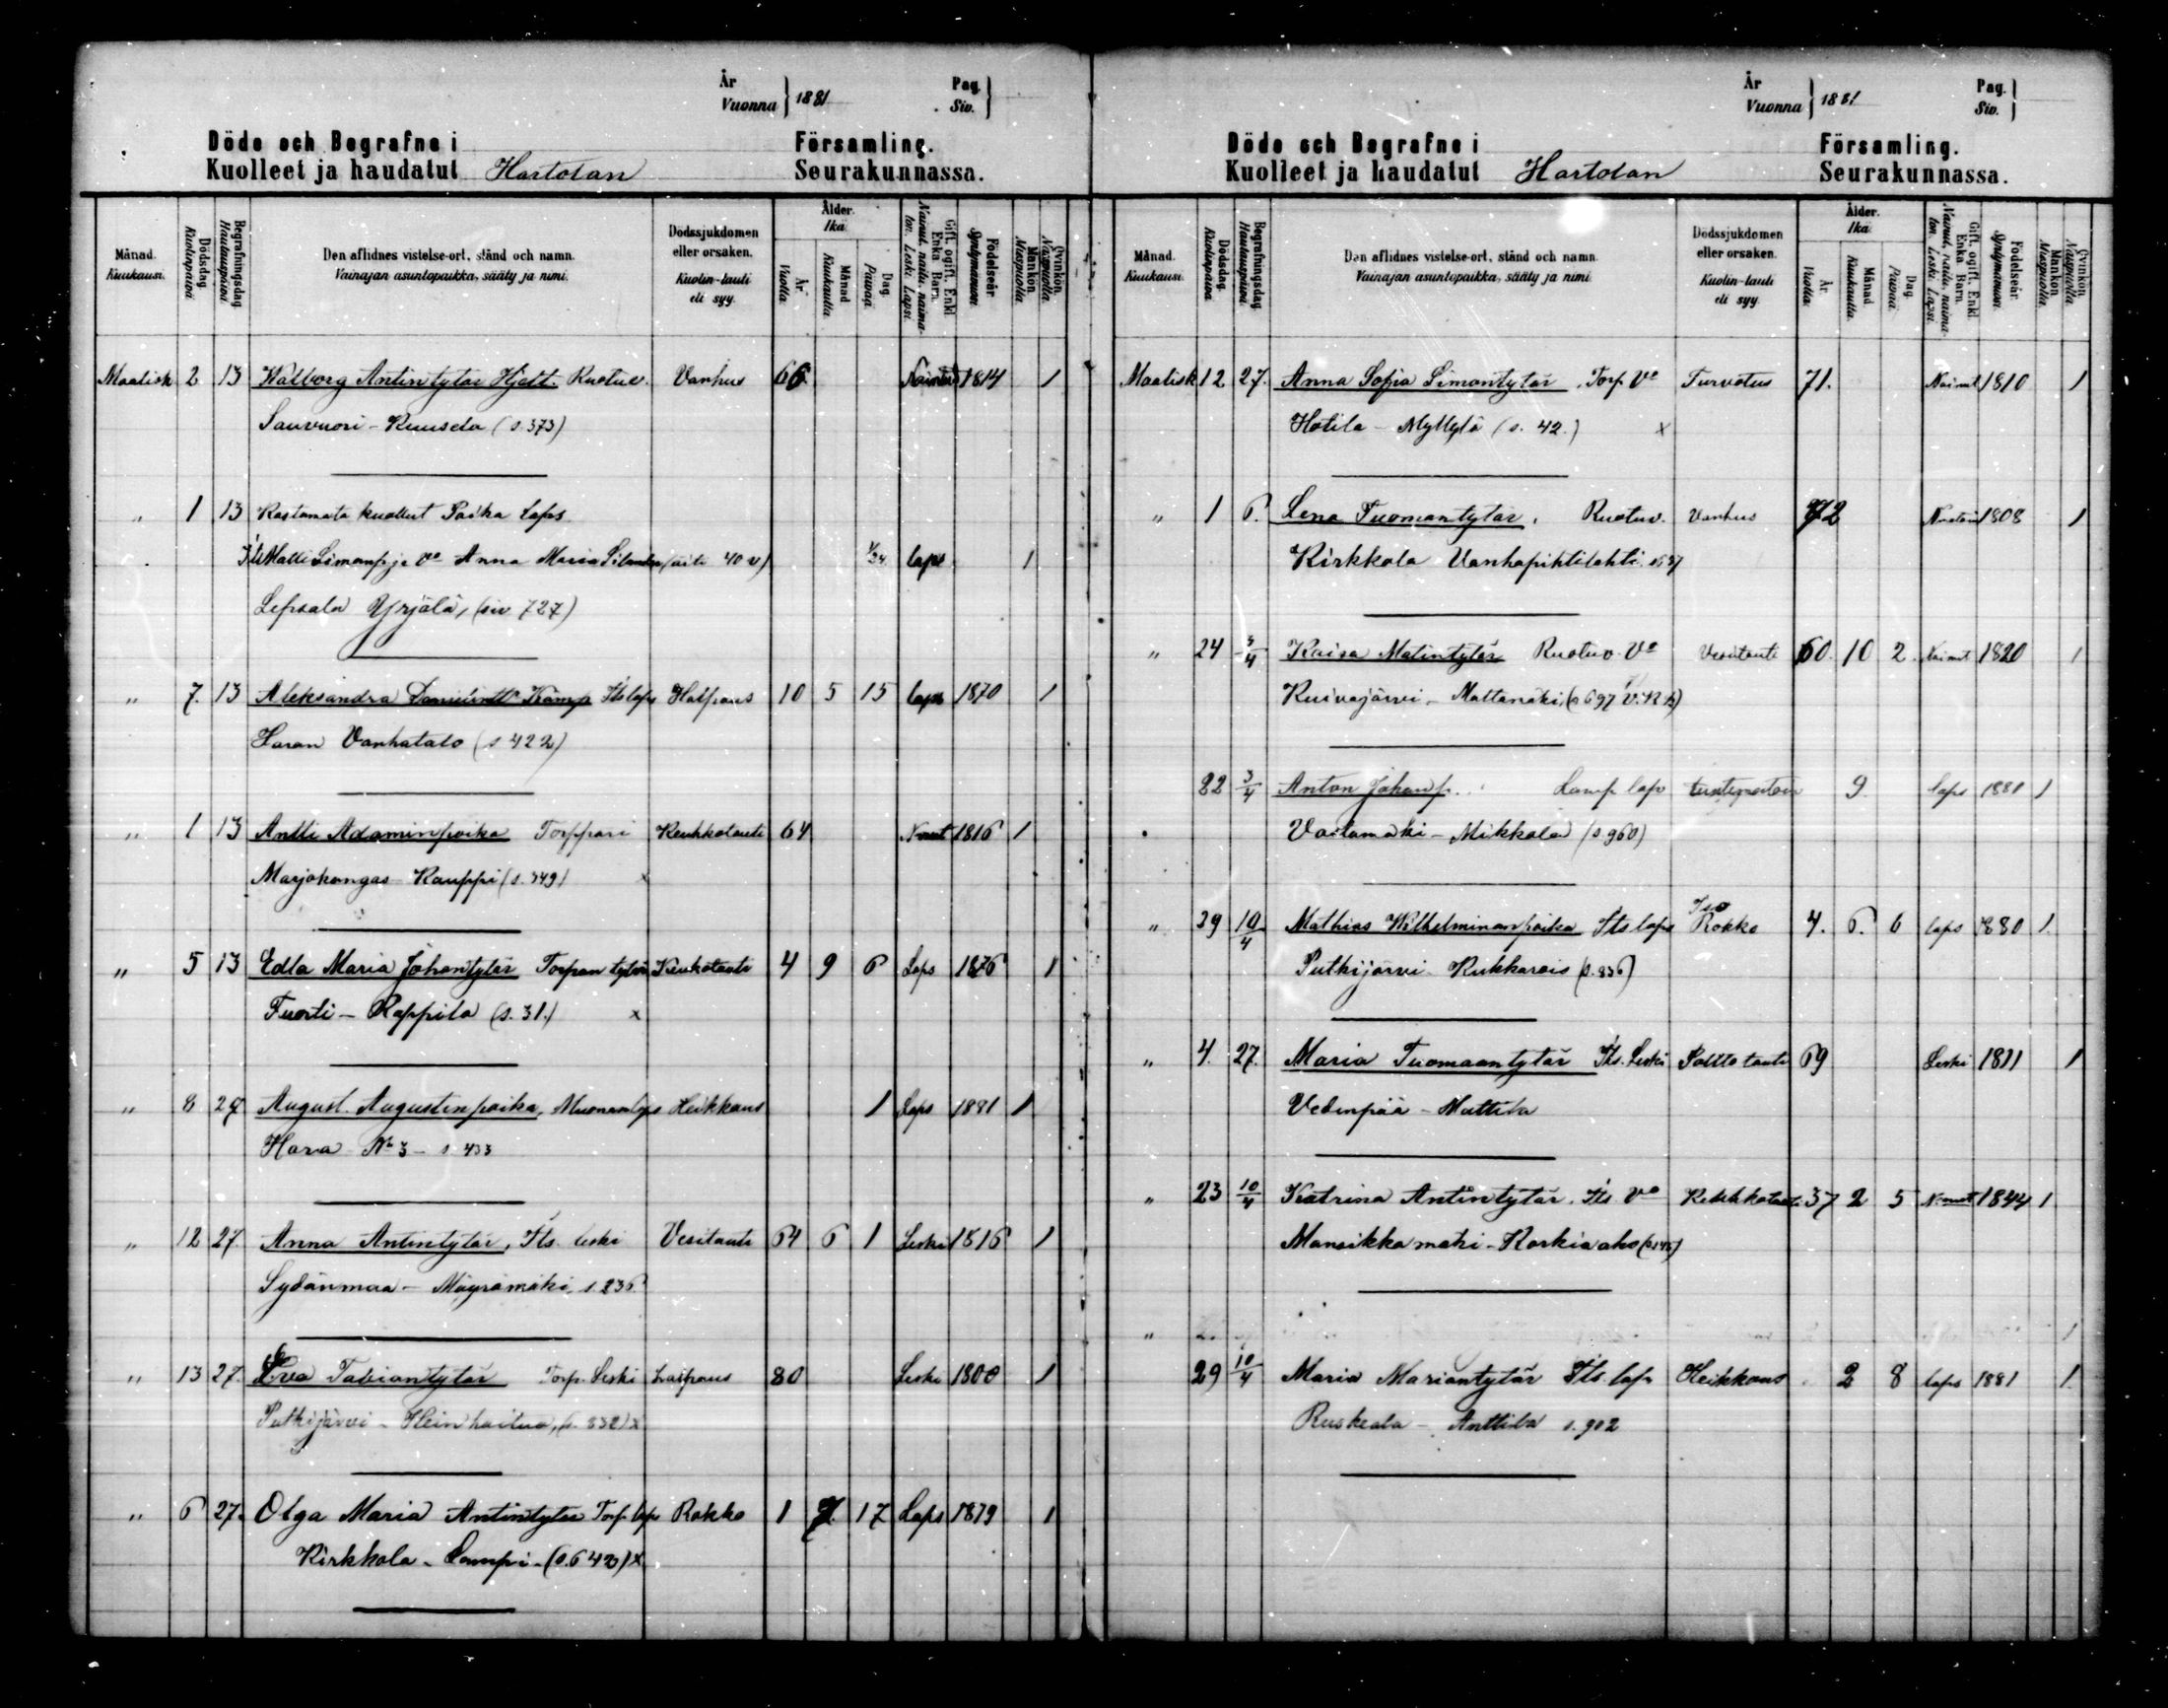 År
Vuonna } 1881
Pag.
Siv. }
Döde och Begrafne i Församling.
Kuolleet ja haudatut Hartolan Seurakunnassa.
Månad. Kuukausi.
Dödsdag. Kuolinpäivä
Begrafningsdag Hautauspäivä.
Den aflidnes vistelse-ort, stånd och namn. Vainajan asuntopaikka, sääty ja nimi.
Dödssjukdomen eller orsaken. Kuolin-tauti eli syy.
Ålder. Ikä
År. Vuotta.
Månad Kuukautta.
Dag. Päivää.
Gift, ogift, Enkl. Enka Barn. Nainut, naitu, naimaton. Leski. Lapsi.
Födelseår. Syntymävuosi.
Mankön Miespuolia.
Qvinkön. Naispuolia.
Maalisk 2 13 Walborg Antintytär Hjelt. Ruotuv. Vanhus 66 1814 1
Sauvuori - Kuusela (s. 373)
" 1 13 Rastamata kuollut Poika Laps
Itl Matti Simonp. ja Vo Anna Maria (äiti 40 v) 1/24 laps 1
Lepsala Yrjölä, (siv 727)
" 7. 13 Aleksandra Kämp Itls laps Halpaus 10 5 15 laps 1870 1
Haran Vanhatalo (s 422)
" 1 13 Antti Adaminpoika Torppari Keuhkotauti 64 N:mut 1816 1
Marjokangas Kauppi (s. 349) x
" 5 13 Edla Maria Johantytär Torpan tytär Keukotauti 4 9 6 Laps 1876 1
Tuorti - Rappila (s. 31.) x
" 8 27 August. Augustinpoika, Muonam laps Heikkous 1 Laps 1881 1
Hara No 3 - s 433
" 12 27. Anna Antintytär, Itls. leski Vesitauti 64 6 1 Leski 1816 1
Sydänmaa - Mäyrämäki, s. 236
" 13 27. Eva Tabiantytär Torp. Leski 80 Leski 1800 1
Putkijärvi - (s. 832) x
" 6 27. Olga Maria Antintytär Torp. laps Rokko 1 7 17 Laps 1879 1
Kirkkola - Lampi - (s. 642) x
År
Vuonna } 1881
Pag.
Siv. }
Döde och Begrafne i Församling.
Kuolleet ja haudatut Hartolan Seurakunnassa.
Månad. Kuukausi.
Dödsdag. Kuolinpäivä.
Begrafningsdag Hautauspäivä.
Den aflidnes vistelse-ort, stånd och namn. Vainajan asuntopaikka, sääty ja nimi.
Dödssjukdomen eller orsaken. Kuolin-tauti eli syy.
Ålder. Ikä.
År. Vuotta.
Månad Kuukautta.
Dag. Päivää.
Gift, ogift, Enkl. Enka Barn. Nainut, naitu, naimaton. Leski. Lapsi.
Födelseår. Syntymävuosi.
Mankön Miespuolia.
Qvinkön. Naispuolia.
Maalisk 12 27. Anna Sofia Simontytär Torp. Vo Turvotus 71. Naimut 1810 1
Hotila - Myllylä (s. 42.) x
" 1 6. Lena Tuomantytär, Ruotuv. Vanhus 72 1808 1
Kirkkola Vanhapihtilahti
" 24 3/4 Kaisa Matintytär Ruotuv. Vo Vesitauti 60 10 2 Naimut 1820 1
Kuivajärvi - (s 697 V.K.K)
22 3/4 Anton Johanp. Lamp laps tuntematoin 9 laps 1881 1
Vastamäki - Mikkola (s. 960)
" 29 10/4 Mathias Wilhelminanpoika Itls laps Iso Rokko 4. 6. 6 laps 1880 1.
Putkijärvi Kukkarois (s. 836)
" 4. 27. Maria Tuomaantytär Itls. Leski Poltto tauti 69 Leski 1811 1
Vedenpää - Mattila
" 23 10/4 Katrina Antintytär Itls Vo Keuhkotauti 37 2 5 N:mut 1844 1
Mansikkamäki - Korkiaaho
29 10/4 Maria Mariantytär Itls. laps Heikkous 2 8 laps 1881 1.
Ruskeala - Anttila s. 902